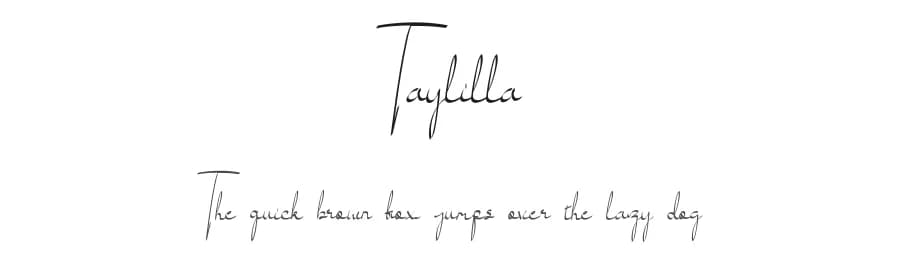 Taylilla
The quick brown fox jumps over the lazy dog